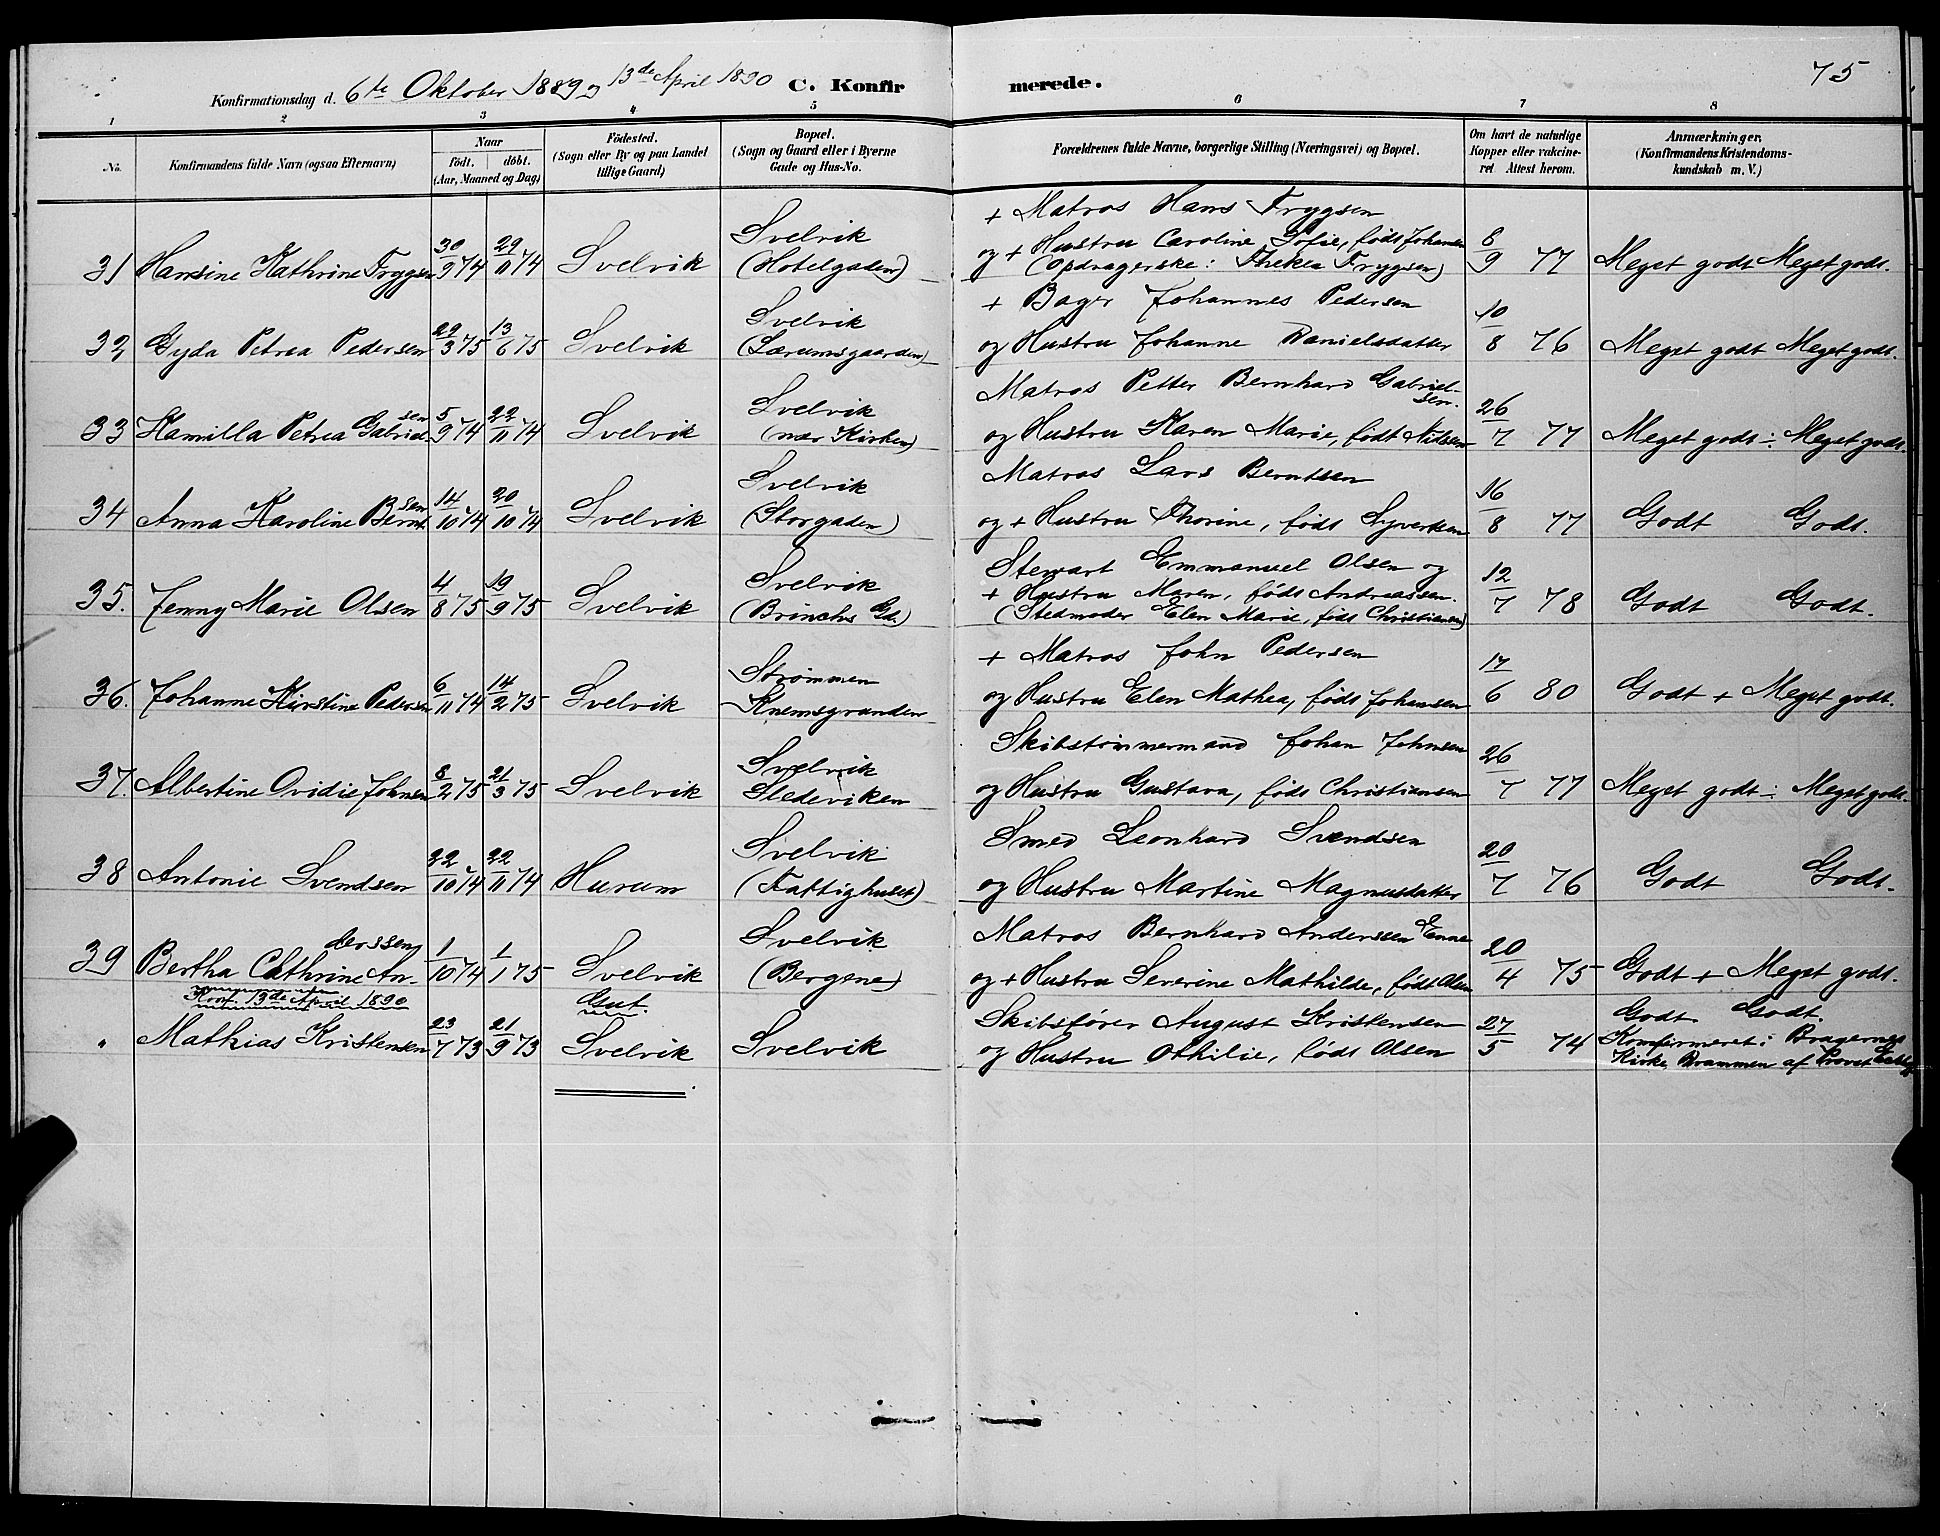 75
Konfirmationsdag d. 6te Oktober 1889 og 13de April 1890 C. Konfirmerede.
1 2 3 4 5 6 7 8
No. Konfirmandens fulde Navn (ogsaa Efternavn) Naar født. døbt. (Aar, Maaned og Dag) Fødested. (Sogn eller By og paa Landet tillige Gaard) Bopæl. (Sogn og Gaard eller i Byerne Gade og Hus-No. Forældrenes fulde Navne, borgerlige Stilling (Næringsvei) og Bopæl. Om havt de naturlige Kopper eller vakcineret Attest herom. Anmærkninger. (Konfirmandens Kristendomskundskab m. V.)
31 Hansine Kathrine Trygsen 30/9 74 29/11 74 Svelvik Svelvik (Hotelgaden) + Matros Hans Trygsen
og + Hustru Caroline Sofie, født Johansen
(Opdragerske: Thekla Trygsen) 8/9 77 Meget godt Meget godt.
32 Gyda Petrea Pedersen 29/3 75 13/6 75 Svelvik Svelvik (Lærumsgaarden) + Bager Johannes Pedersen
og Hustru Johanne Danielsdatter 10/8 76 Meget godt Meget godt.
33 Kamilla Petrea Gabrielsen 5/9 74 22/11 74 Svelvik Svelvik (nær Kirken) Matros Petter Bernhard Gabrielsen.
og Hustru Karen Marie, født Nilsen 26/7 77 Meget godt ÷ Meget godt.
34 Anna Karoline Berntsen 14/10 74 20/10 74 Svelvik Svelvik (Storgaden) Matros Lars Berntsen
og + Hustru Thorine, født Syvertsen 16/8 77 Godt Godt.
35. Jenny Marie Olsen 4/8 75 19/9 75 Svelvik Svelvik (Brinchs Gd.) Stewart Emmanuel Olsen og
+ Hustru Maren, født Andreassen.
(Stedmoder Elen Marie, født Christiansen) 12/7 78 Godt Godt.
36. Johanne Kirstine Pedersen 6/11 74 14/2 75 Svelvik Strømmen Knemsgranden + Matros John Pedersen
og Hustru Elen Mathea, født Johansen 17/6 80 Godt + Meget godt.
37. Albertine Ovidie Johnsen 8/2 75 21/3 75 Svelvik Svelvik Stedeviken Skibstømmermand Johan Johnsen
og Hustru Gustava, født Christiansen 26/7 77 Meget godt ÷ Meget godt.
38 Antonie Svendsen 22/10 74 22/11 74 Hurum Svelvik (Fattighuset) Smed Leonhard Svendsen
og Hustru Martine Magnusdatter 20/7 76 Godt Godt.
39 Bertha Cathrine Anderssen 1/10 74 1/1 75 Svelvik Svelvik (Bergene) Matros Bernhard Anderssen Enne
og + Hustru Severine Mathilde, født Olsen 20/4 75 Godt + Meget godt.
Konf. 13de April 1890 Gut.
" Mathias Kristensen 23/7 73 21/9 73 Svelvik Svelvik Skibsfører August Kristensen
og Hustru Othilie, født Olsen 27/5 74 Godt. Godt.
Konfirmeret i Bragernes
Kirke Drammen af Provst